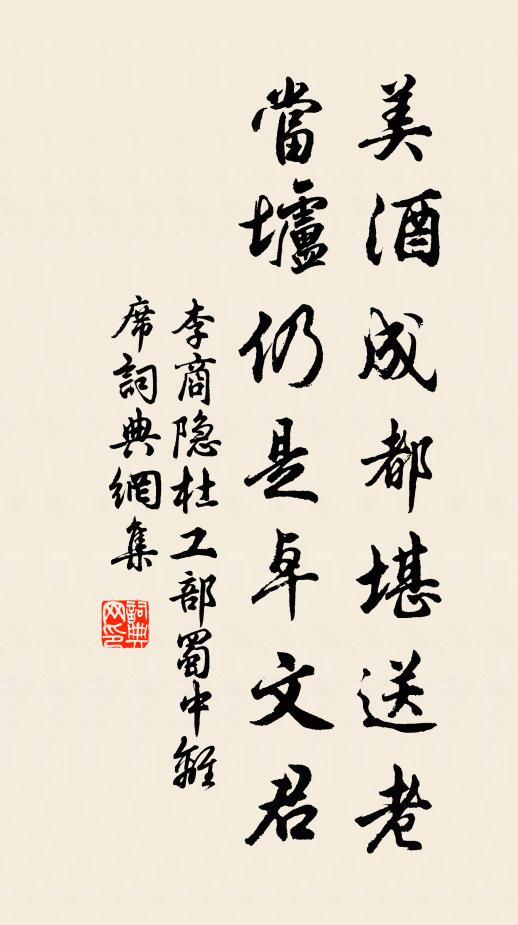 美酒成都堪送老
當壚仍是卓文君
李商隐杜工部蜀中離
席詞典網集
詞典網印